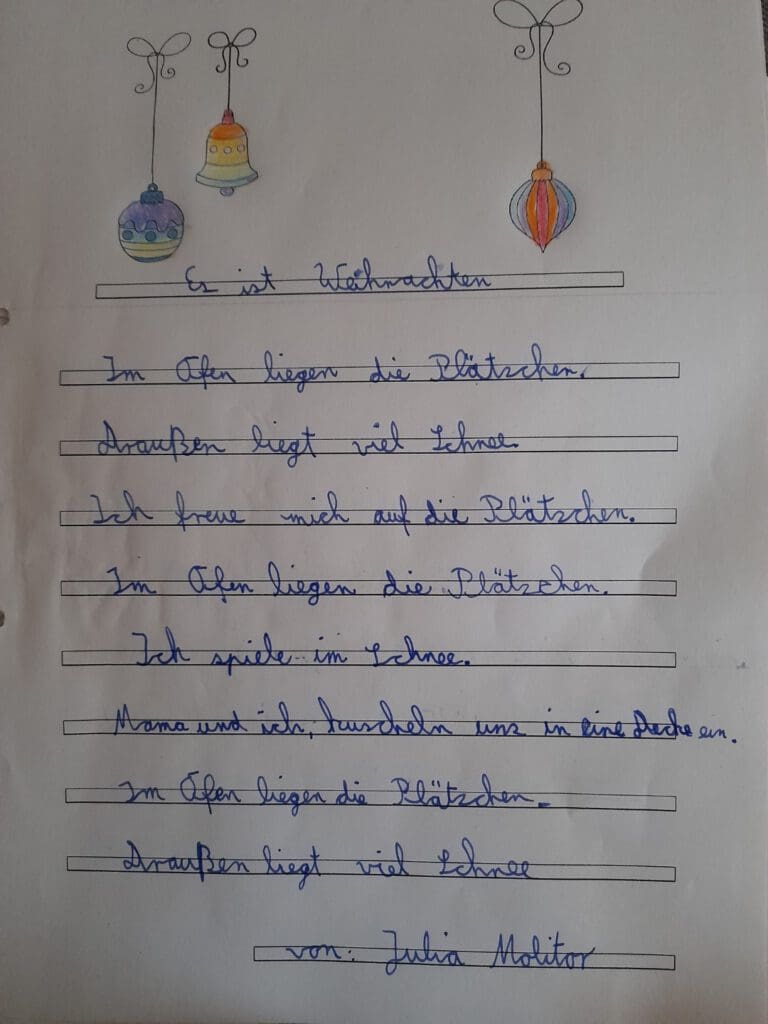 Es ist Weihnachten
Im Ofen liegen die Plätzchen.
Draußen liegt viel Schnee.
Ich freue mich auf die Plätzchen.
Im Ofen liegen die Plätzchen.
Ich spiele im Schnee.
Mama und ich, kuscheln uns in eine Decke ein.
Im Ofen liegen die Plätzchen.
Draußen liegt viel Schnee
von: Julia Molitor